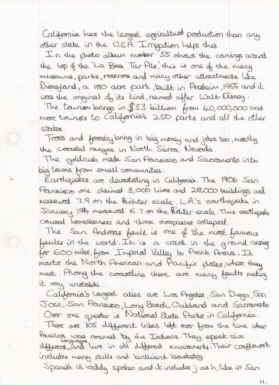 California has the largest agricultural production than any
other state in the U.S.A. Irrigation helps this.
In the photo album number 55 shows the carvings around
the top of the 'La Brea Tar Pits', this is one of the many
museums, parks, reserves and many other attractions like
Disneyland, a 180 acre park, built in Anaheim, 1955 and it
was the original of its kind, named after Walt Disney.
The tourism brings in $53 billion from 40,000,000 and
more tourists to California's 250 parks and all the other
states
Trees and forestry bring in big money and jobs too, mostly
the coastal ranges in North Sierra Nevada.
The goldrush made San Francisco and Sacramento into
big towns from small communities.
Earthquakes are devastating in California. The 1906 San
Francisco one claimed 3,000 lives and 28,000 buildings and
measured 7.9 on the Richter scale. L.A.'s earthquake in
January 1994 measured 6.7 on the Richter scale. This earthquake
caused homelessness and some roadways collapsed.
The San Andreas fault is one of the most famous
faults in the world. It is a crack in the ground running
for 600 miles from Imperial Valley to Point Arena. It
marks the North American and Pacific plates where they
meet. Among the coastline there are many faults making
it very unstable.
California's largest cities are Los Angeles, San Diego, San
Jose, San Francisco, Long Beach, Oakland and Sacramento
Over one quarter is National State Parks in California.
There are 105 different tribes left over from the time when
America was owned by the Indians. They speak six
different languages and live in all different environments. Their craftwork
includes many skills and brilliant basketry.
Spanish is readily spoken and it includes j as h, like in San